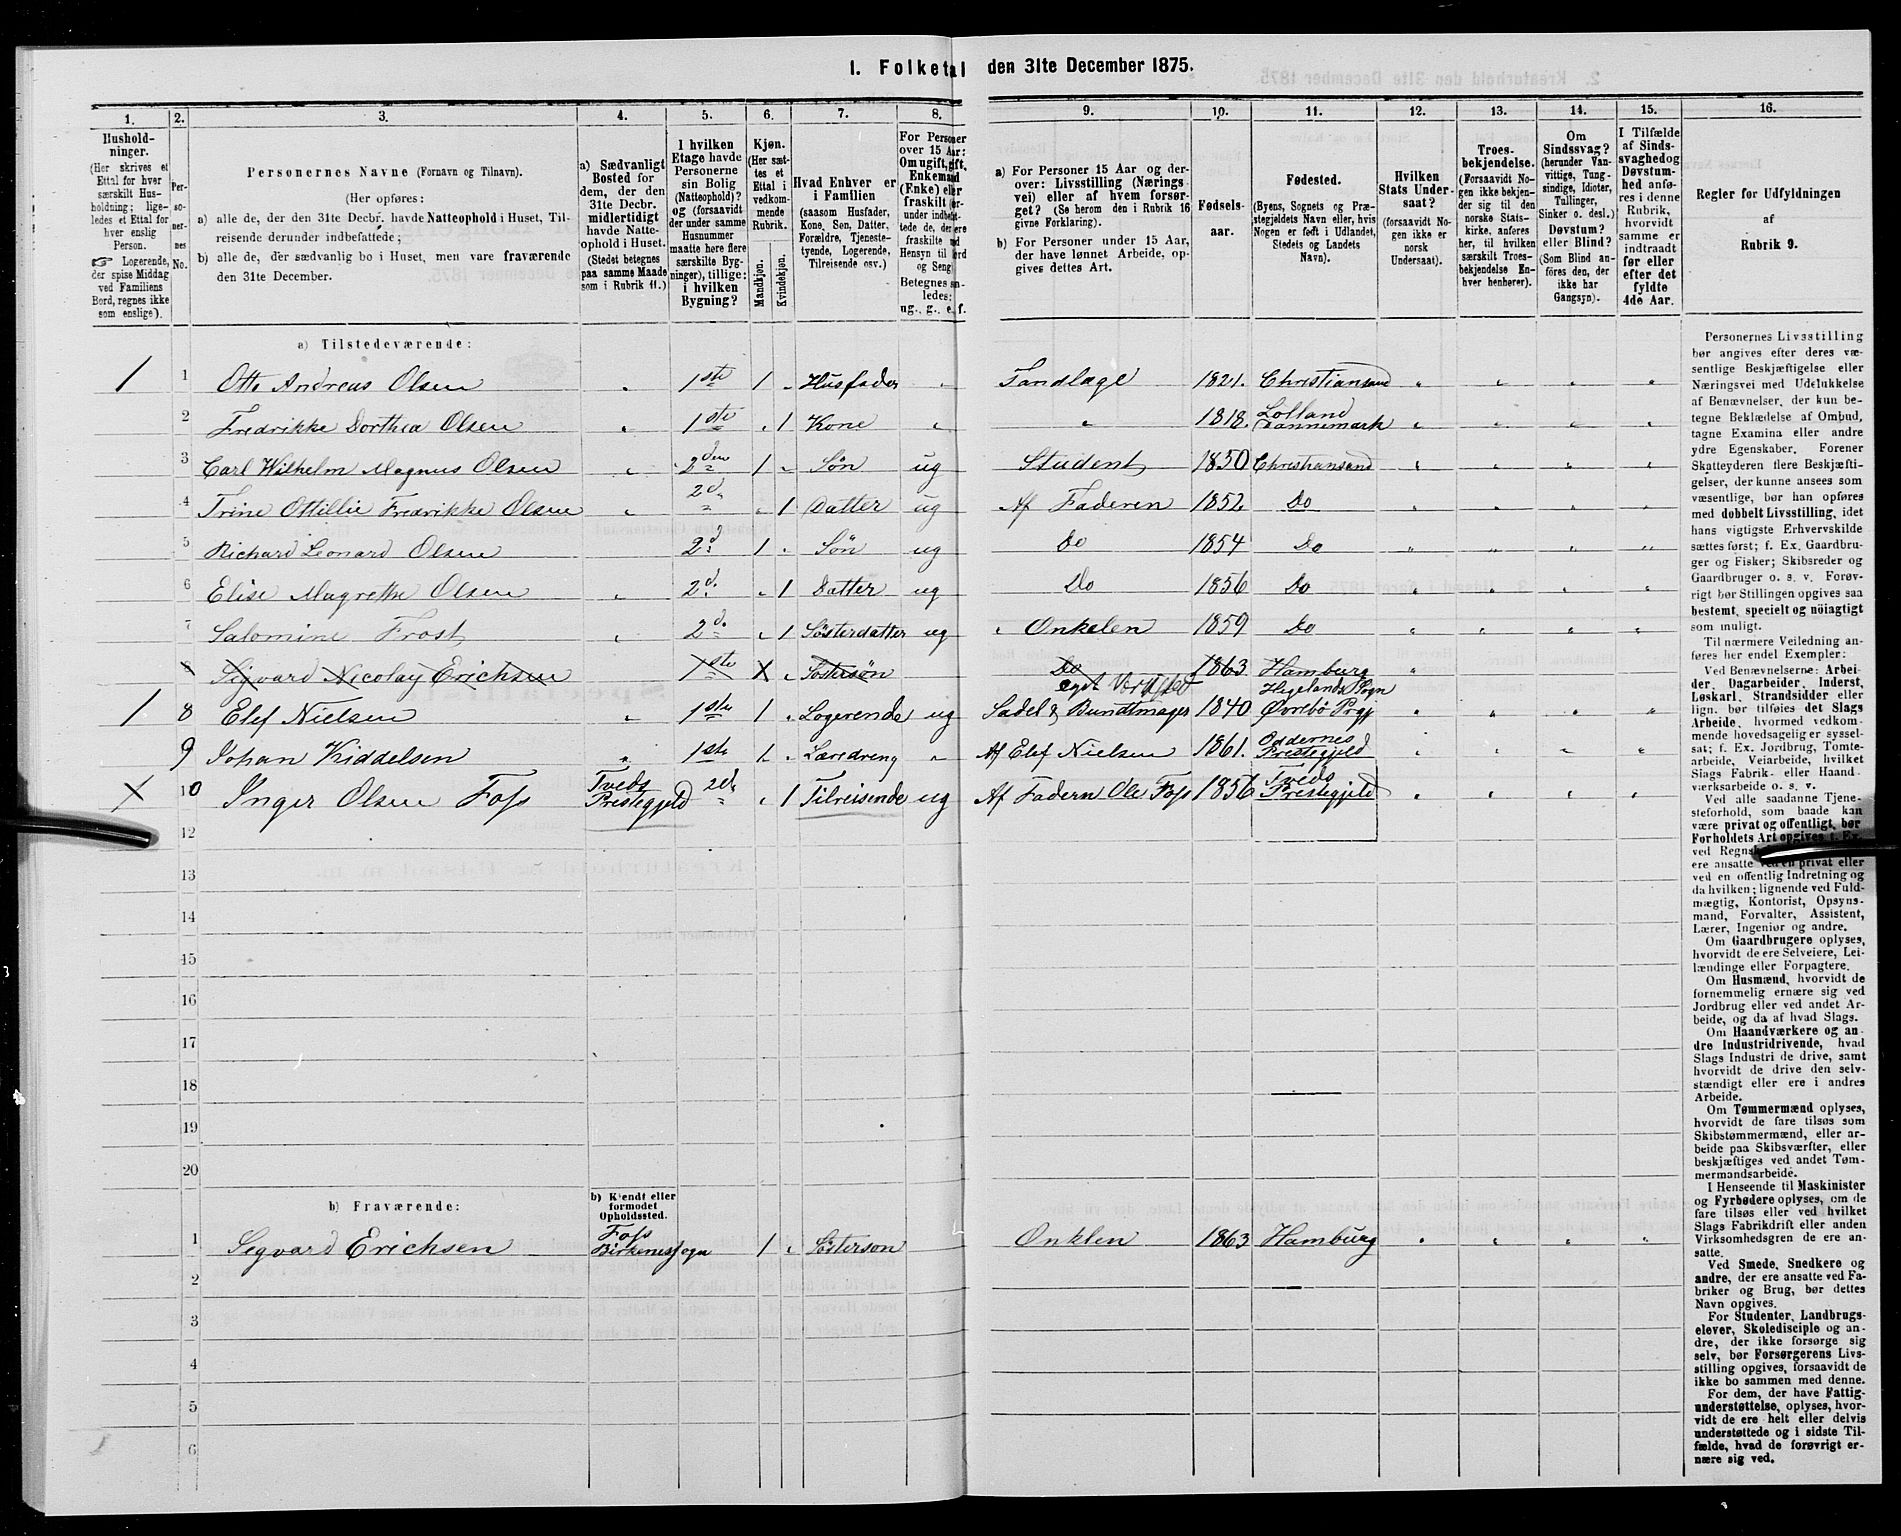 1. Folketal den 31te December 1875.
1. 2. 3. 4. 5. 6. 7. 8. 9. 10. 11. 12. 13. 14. 15. 16.
Hushold-
ninger.
(Her skrives et
Ettal for hver
særskilt Hus-
holdning; lige-
ledes et Ettal for
hver enslig
Person.
☞ Logerende,
der spise Middag
ved Familiens
Bord, regnes ikke
som enslige).
Per-
so-
ner-
nes
No.
Personernes Navne (Fornavn og Tilnavn).
(Her opføres:
a) alle de, der den 31te Decbr. havde Natteophold i Huset, Til-
reisende derunder indbefattede;
b) alle de, der sædvanlig bo i Huset, men vare fraværende
den 31te December.
a) Sædvanligt
Bosted for
dem, der den
31te Decbr.
midlertidigt
havde Natte-
ophold i Huset.
(Stedet betegnes
paa samme Maade
som i Rubrik 11.)
I hvilken
Etage havde
Personerne
sin Bolig
(Natteophold)?
og (forsaavidt
der under samme
Husnummer
maatte høre flere
særskilte Byg-
ninger), tillige:
i hvilken
Bygning?
Kjøn.
(Her sæt-
tes et
Ettal i
vedkom-
mende
Rubrik.
Mandkjøn.
Kvindekjøn.
Hvad Enhver er
i Familien
(saasom Husfader,
Kone, Søn, Datter,
Forældre, Tjeneste-
tyende, Logerende,
Tilreisende osv.)
For Personer
over 15 Aar:
Om ugift, gift,
Enkemand
(Enke) eller
fraskilt (der-
under indbefat-
tede de, der ere
fraskilte med
Hensyn til Bord
og Seng).
Betegnes saa-
ledes:
ug., g., e., f.
a) For Personer 15 Aar og der-
over: Livsstilling (Nærings-
vei) eller af hvem forsør-
get? (Se herom den i Rubrik 16
givne Forklaring).
b) For Personer under 15 Aar,
der have lønnet Arbeide, op-
gives dettes Art.
Fødsels-
aar.
Fødested.
(Byens, Sognets og Præ-
stegjeldets Navn eller, hvis
Nogen er født i Udlandet,
Stedets og Landets
Navn).
Hvilken
Stats Under-
saat?
(forsaavidt No-
gen ikke er
norsk
Undersaat).
Troes-
bekjendelse.
(Forsaavidt No-
gen ikke bekjen-
der sig til den
norske Stats-
kirke, anføres
her, til hvilken
særskilt Troes-
bekjendelse En-
hver henhører).
Om
Sindssvag?
(herunder Van-
vittige, Tung-
sindige, Idioter,
Tullinger,
Sinker o. desl.)
Døvstum?
eller Blind?
(Som Blind an-
føres den, der
ikke har
Gangsyn).
I Tilfælde
af Sinds-
svaghed og
Døvstum-
hed anfø-
res i denne
Rubrik,
hvorvidt
samme er
indtraadt
før eller
efter det
fyldte
4de Aar.
Regler for Udfyldningen
af
Rubrik 9.
a) Tilstedeværende:
1 1 Otto Andreas Olsen " 1ste 1 " Husfader " Tandlæge 1821. Christiansand " " " "
2 Fredrikke Dorthea Olsen " 1ste " 1 Kone " " 1818. Lolland Dannemark " " " "
3 Carl Wilhelm Magnus Olsen " 2den 1 " Søn ug Student 1850 Christiansand " " " "
4 Trine Ottillie Fredrikke Olsen " 2d " 1 Datter ug Af Faderen 1852 Do " " " "
5 Richard Leonard Olsen 2d 1 " Søn ug Do 1854 Do " " " "
6 Elise Magrethe Olsen " 2d " 1 Datter ug Do 1856 Do " " " "
7 Salomine Frost " 2d " 1 Søsterdatter ug " Onkelen 1859 Do " " " "
8 Sigvard Nicolay Erichsen 1ste X " Søstersøn Do 1863 Hamburg "
1 8 Elef Nielsen " 1ste 1 " Logerende ug eget Værksted Sadel & Bundtmager 1840 Hegelands Sogn Øvrebø Prgj " " " "
9 Johan Kiddelsen " 1ste 1 " Læredreng " Af Elef Nielsen 1861. Oddernes Prestegjeld " " " "
X 10 Inger Olsen Foss Tveds Prestegjeld 2d " 1 Tilreisende ug Af Fadern Ole Foss 1856 Tveds Prestegjeld " " " "
12
13
14
15
16
17
18
19
20
b) Fraværende:
b) Kjendt eller
formodet
Opholdssted.
1 Segvard Erichsen Foss Birkenessogn 1 " Søsterson Onklen 1863 Hamburg " " " "
2
3
4
5
6
Personernes Livsstilling
bør angives efter deres væ-
sentlige Beskjæftigelse eller
Næringsvei med Udelukkelse
af Benævnelser, der kun be-
tegne Beklædelse af Ombud,
tagne Examina eller andre
ydre Egenskaber. Forener
Skatteyderen flere Beskjæfti-
gelser, der kunne ansees som
væsentlige, bør han opføres
med dobbelt Livsstilling, idet
hans vigtigste Erhvervskilde
sættes først; f. Ex. Gaardbru-
ger og Fisker; Skibsreder og
Gaardbruger o. s. v. Forøv-
rigt bør Stillingen opgives saa
bestemt, specielt og nöiagtigt
som muligt.
Til nærmere Veiledning an-
føres her endel Exempler:
Ved Benævnelserne: Arbei-
der, Dagarbeider, Inderst,
Løskarl, Strandsidder eller
lign. bør tilføies det Slags
Arbeide, hvormed vedkom-
mende hovedsagelig er syssel-
sat; f. Ex. Jordbrug, Tomte-
arbeide, Veiarbeide, hvilket
Slags Fabrik- eller Haand-
værksarbeide o. s. v.
Ved alle saadanne Tjene-
steforhold, som baade kan
være privat og offentligt, bør
Forholdets Art opgives, f. Ex.
ved
ere ansatte ved en privat eller
ved en offentlig Indretning og
da hvilken; lignende ved Fuld-
mægtig, Kontorist, Opsyns-
mand, Forvalter, Assistent,
Lærer, Ingeniør og andre.
Om Gaardbrugere oplyses,
hvorvidt de ere Selveiere, Lei-
lændinge eller Forpagtere.
Om Husmænd, hvorvidt de
fornemmelig ernære sig ved
Jordbrug eller ved andet Ar-
beide, og da af hvad Slags.
Om Haandværkere og an-
dre Industridrivende, hvad
Slags Industri de drive, samt
hvorvidt de drive den selv-
stændigt eller ere i andres
Arbeide.
Om Tømmermænd oplyses,
hvorvidt de fare tilsøs som
Skibstømmermænd, eller ar-
beide paa Skibsværfter, eller
beskjæftiges ved andet Tøm-
mermandsarbeide.
I Henseende til Maskinister
og Fyrbødere oplyses, om de
fare tilsøs eller ved hvilket
Slags Fabrikdrift eller anden
Virksomhedsgren de ere an-
satte.
Ved Smede, Snedkere og
andre, der ere ansatte ved Fa-
briker og Brug, bør dettes
Navn opgives.
For Studenter, Landbrugs-
elever, Skoledisciple og an-
dre, der ikke forsørge sig
selv, bør Forsørgerens Livs-
stilling opgives, forsaavidt de
ikke bo sammen med denne.
For dem, der have Fattig-
understøttelse, oplyses, hvor-
vidt de ere helt eller delvis
understøttede og i sidste Til-
fælde, hvad de forøvrigt er-
nære sig ved.